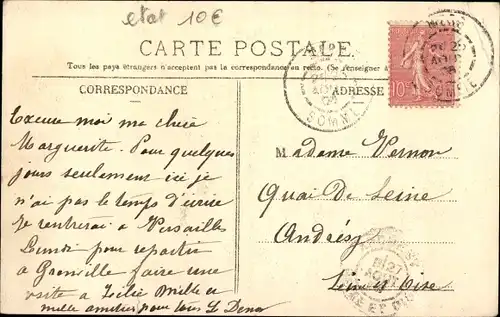 etat 10€
CARTE POSTALE
Tous les pays étrangers n'acceptent pas la correspondance au recto. (Se renseigner à
CORRESPONDANCE
ADRESSE
SOMME
10
Excuse moi ma chère
Marguerite. Pour quelques
jours seulement ici je
n'ai pas le temps d'écrire
Je rentrerai à Versailles
Lundi pour repartir
à Granville faire une
visite à Mille et
mille amitiés pour tous
Madame Vernon
Quai de Seine
Andrésy
Seine et Oise